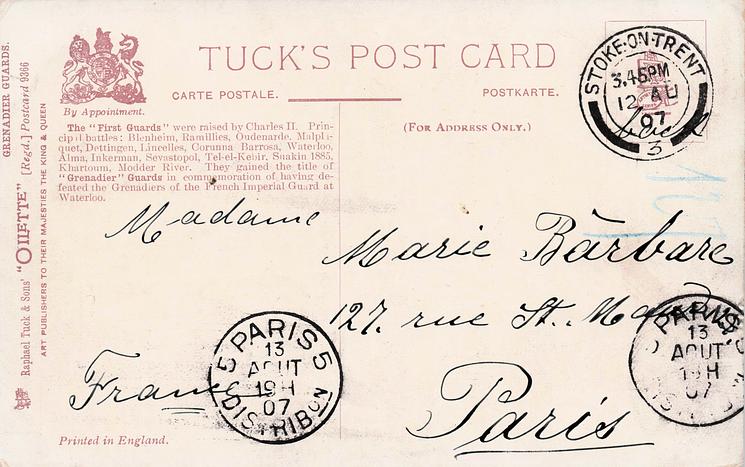 TUCK'S POST CARD
CARTE POSTALE.
POSTKARTE.
(FOR ADDRESS ONLY.)
By Appointment.
The "First Guards" were raised by Charles II. Prin-
cipal battles: Blenheim, Ramillies, Oudenarde. Malpla-
quet, Dettingen, Lincelles, Corunna Barrosa, Waterloo,
Alma, Inkerman, Sevastopol, Tel-el-Kebir, Suakin 1885,
Khartoum, Modder River. They gained the title of
"Grenadier" Guards in commemoration of having de-
feated the Grenadiers of the French Imperial Guard at
Waterloo.
GRENADIER GUARDS.
Raphael Tuck & Sons' "OILETTE" [Regd.] Postcard 9366
ART PUBLISHERS TO THEIR MAJESTIES THE KING & QUEEN
STOKE-ON-TRENT
3.45PM
12 AU
07
3
Madame
Marie Bàrbare
127. rue St.
Paris
France
PARIS 5
13
AOUT
19H
07
DISTRIBON
PARIS
13
AOUT
19H
07
Printed in England.